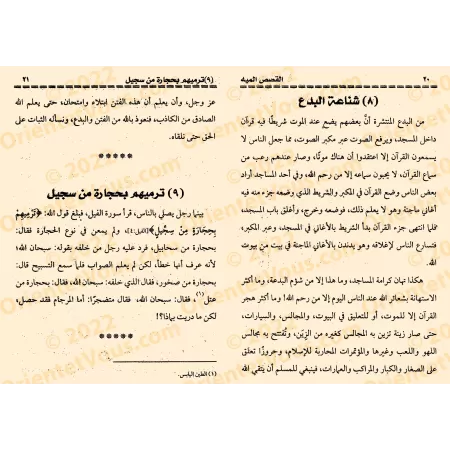 ٢٠ القصص المبه
(٨) شناعة البدع
من البدع المنتشرة أنَّ بعضهم يضع عند الموت شريطًا فيه قرآن
داخل المسجد، ويرفع الصوت عبر مكبر الصوت، مما جعل الناس لا
يسمعون القرآن إلا اعتقدوا أن هناك موتًا، وصار عندهم رعب من
سماع القرآن، لا يحبون سماعه إلا من رحم الله، وفي أحد المساجد أراد
بعض الناس وضع القرآن في المكبر والشريط الذي وضعه جزء منه فيه
أغاني ماجنة وهو لا يعلم ذلك، فوضعه وخرج، وأغلق باب المسجد،
فمَّا انتهى جزء القرآن بدأ الشريط بالأغاني في المسجد، وعبر المكبر،
فتسارع الناس لإغلاقه وهو يدندن بالأغاني الماجنة في بيت من بيوت
الله.
هكذا تهان كرامة المساجد، وما هذا إلا من شؤم البدعة، وما أكثر
الاستهانة بشعائر الله عند الناس اليوم إلا من رحم الله! وما أكثر هجر
القرآن إلا للموت، أو للتعليق في البيوت، والمجالس، والسيارات،
حتى صار زينة تزين به المجالس كغيره من الزِيَن، وتُفتتح به مجالس
اللهو واللعب وغيرها والمؤتمرات المحاربة للإسلام، وحروزًا تعلق
على الصغار والكبار والمراكب والعمارات، فينبغي للمسلم أن يتقي الله
(٩) ترميهم بحجارة من سجيل ٢١
عز وجل، وأن يعلم أن هذه الفتن ابتلاء وامتحان، حتى يعلم الله
الصادق من الكاذب، فنعوذ بالله من الفتن والبدع، ونسأله الثبات على
الحق حتى نلقاه.
*****
(٩) ترميهم بحجارة من سجيل
بينما رجل يصلي بالناس، قرأ سورة الفيل، فبلغ قول الله: ﴿تَرْمِيهِمْ
بِحِجَارَةٍ مِنْ سِجِّيلٍ﴾[الفيل:٤]، ولم يمعن في نوع الحجارة فقال:
بحجارة من سباطيل، فرد عليه رجل من خلفه بقوله: سبحان الله،
لأنه عرف أنها خطأ، لكن لم يعلم الصواب فلما سمع التسبيح قال:
بحجارة من صخور، فقال الذي خلفه: سبحان الله، فقال: بحجارة من
عتل(١)، فقال: سبحان الله، فقال متضجرًا: أما المرجام فقد حصل،
لكن ما دريت بماذا؟!
*****
(١) الطين اليابس.
OrientetVous.com © 2022